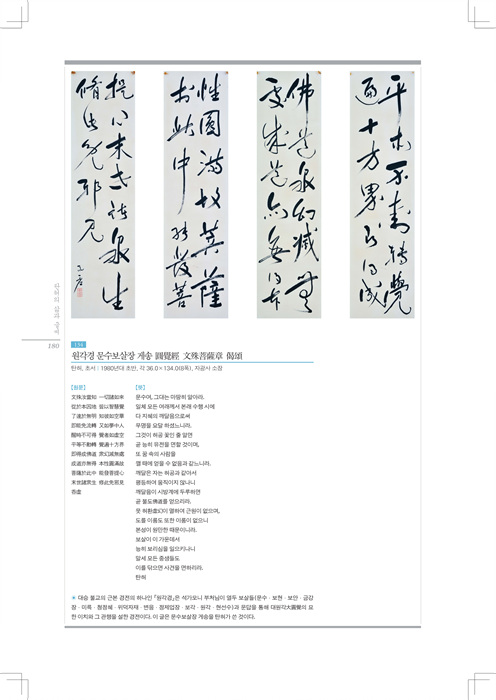 平等不動轉覺
遍十方界即得成
佛道衆幻滅無
處成道亦無得本
性圓滿故菩薩
於此中能發菩
提心末世諸衆生
修此免邪見
탄허의 삶과
180
134
원각경 문수보살장 게송 圓覺經 文殊菩薩章 偈頌
탄허, 초서 : 1980년대 초반, 각 36.0×134.0(8폭), 자광사 소장
[원문]
文殊汝當知 一切諸如來
從於本因地 皆以智慧覺
了達於無明 知彼如空華
即能免流轉 又如夢中人
醒時不可得 覺者如虛空
平等不動轉 覺遍十方界
即得成佛道 衆幻滅無處
成道亦無得 本性圓滿故
菩薩於此中 能發菩提心
末世諸衆生 修此免邪見
呑虛
[역]
문수여, 그대는 마땅히 알아라.
일체 모든 여래께서 본래 수행 시에
다 지혜의 깨달음으로써
무명을 요달 하셨느니라.
그것이 허공 꽃인 줄 알면
곧 능히 유전을 면할 것이며,
또 꿈 속의 사람을
깰 때에 얻을 수 없음과 같느니라.
깨달은 자는 허공과 같아서
평등하여 움직이지 않나니
깨달음이 시방계에 두루하면
곧 불도佛道를 얻으리라.
뭇 허환虛幻이 멸하여 근원이 없으며,
도를 이룸도 또한 이룸이 없으니
본성이 원만한 때문이니라.
보살이 이 가운데서
능히 보리심을 일으키나니
말세 모든 중생들도
이를 닦으면 사견을 면하리라.
탄허
* 대승 불교의 근본 경전의 하나인 『원각경』은 석가모니 부처님이 열두 보살들(문수 · 보현 · 보안 · 금강
장 · 미륵 · 청정혜 · 위덕자재 · 변음 · 정제업장 · 보각 · 원각 · 현선수)과 문답을 통해 대원각大圓覺의 묘
한 이치와 그 관행을 설한 경전이다. 이 글은 문수보살장 게송을 탄허가 쓴 것이다.